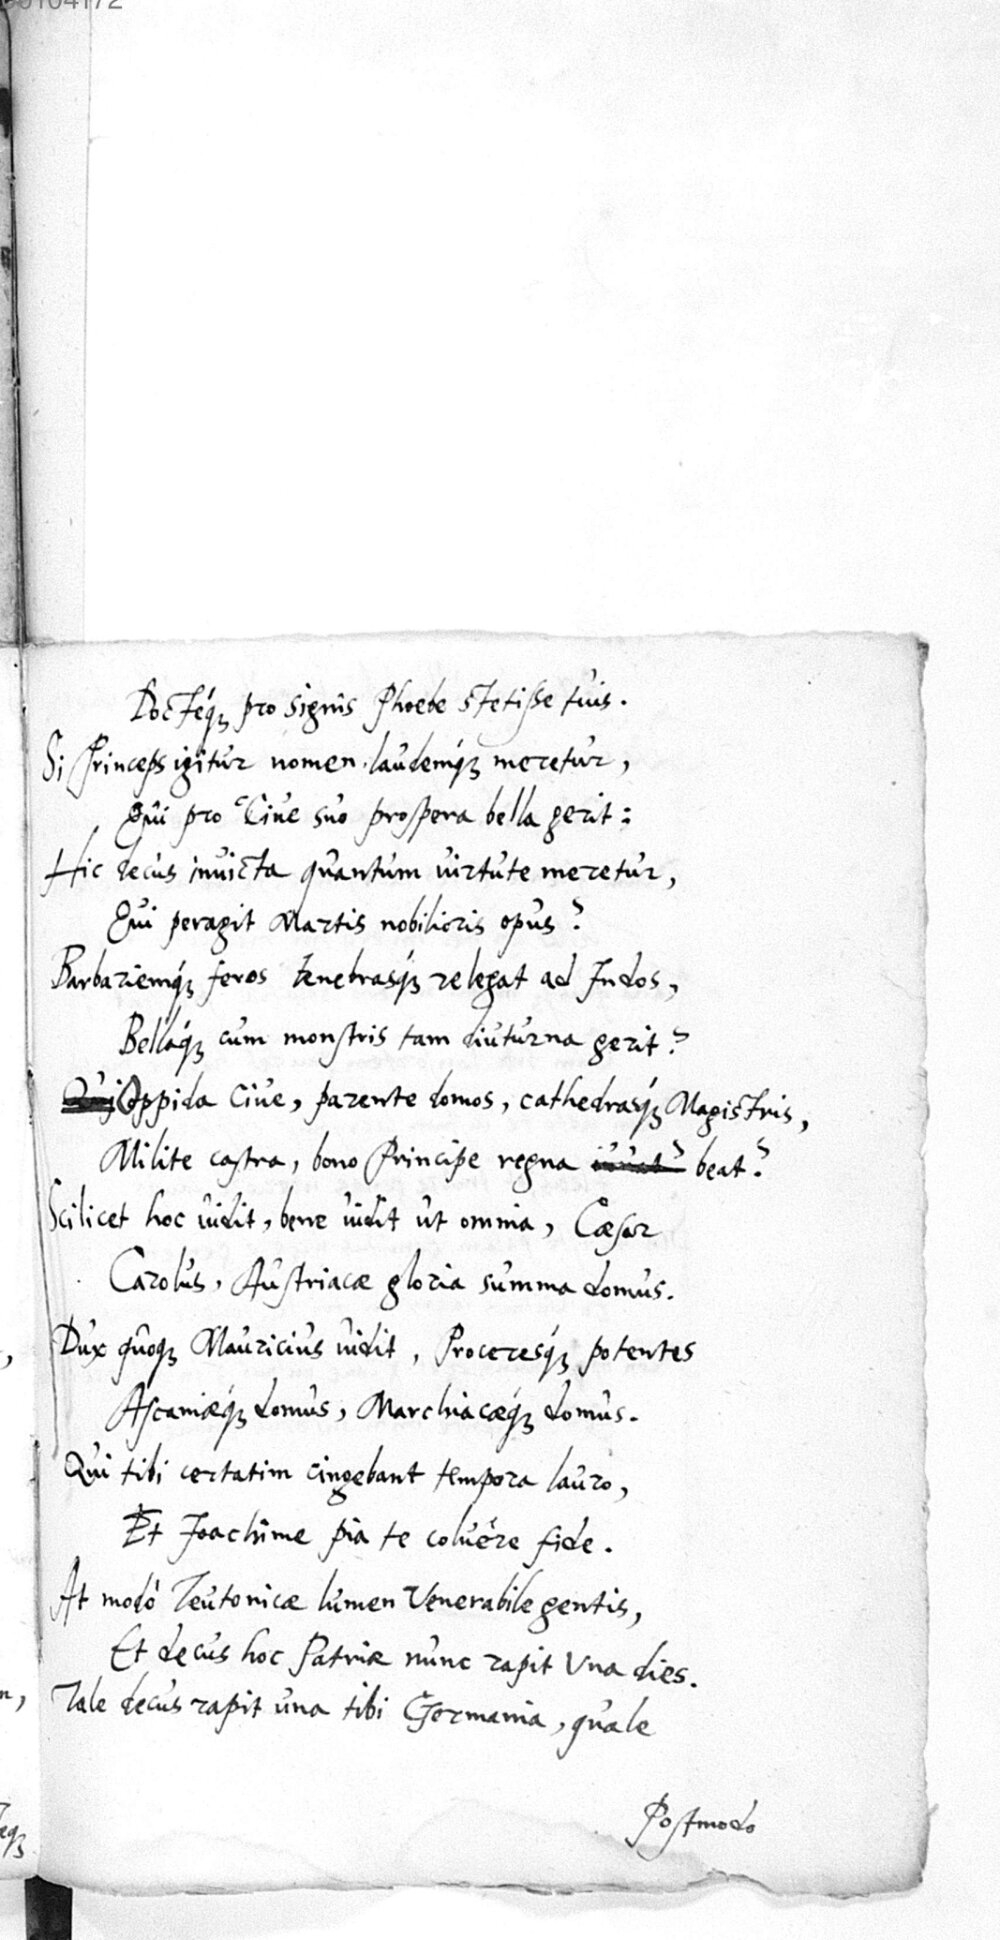 Doctéq₃ pro signis Phoebe stetisse tuis.
Si Princeps igitur nomen laudemq́₃ meretur,
Qui pro Ciue suo prospera bella gerit:
Hic decus inuicta quantum uirtute meretur,
Qui peragit Martis nobilioris opus?
Barbariemq́₃ feros tenebrasq́₃ relegat ad Indos,
Bellaq́₃ cum monstris tam diuturna gerit?
Oppida Ciue, parente domos, cathedrasq́₃ Magistris,
Milite castra, bono Principe regna beat?
Scilicet hoc uidit, bene uidit ut omnia, Cæsar
Carolus, Austriacæ gloria summa domus.
Dux quoq₃ Mauricius uidit, Proceresq́₃ potentes
Ascaniæq́₃ domus, Marchiacæq́₃ domus.
Qui tibi certatim cingebant tempora lauro,
Et Joachime pia te coluêre fide.
At modò Teutonicæ lumen Venerabile gentis,
Et decus hoc Patriæ nunc rapit Vna dies.
Tale decus rapit una tibi Germania, quale
Postmodo